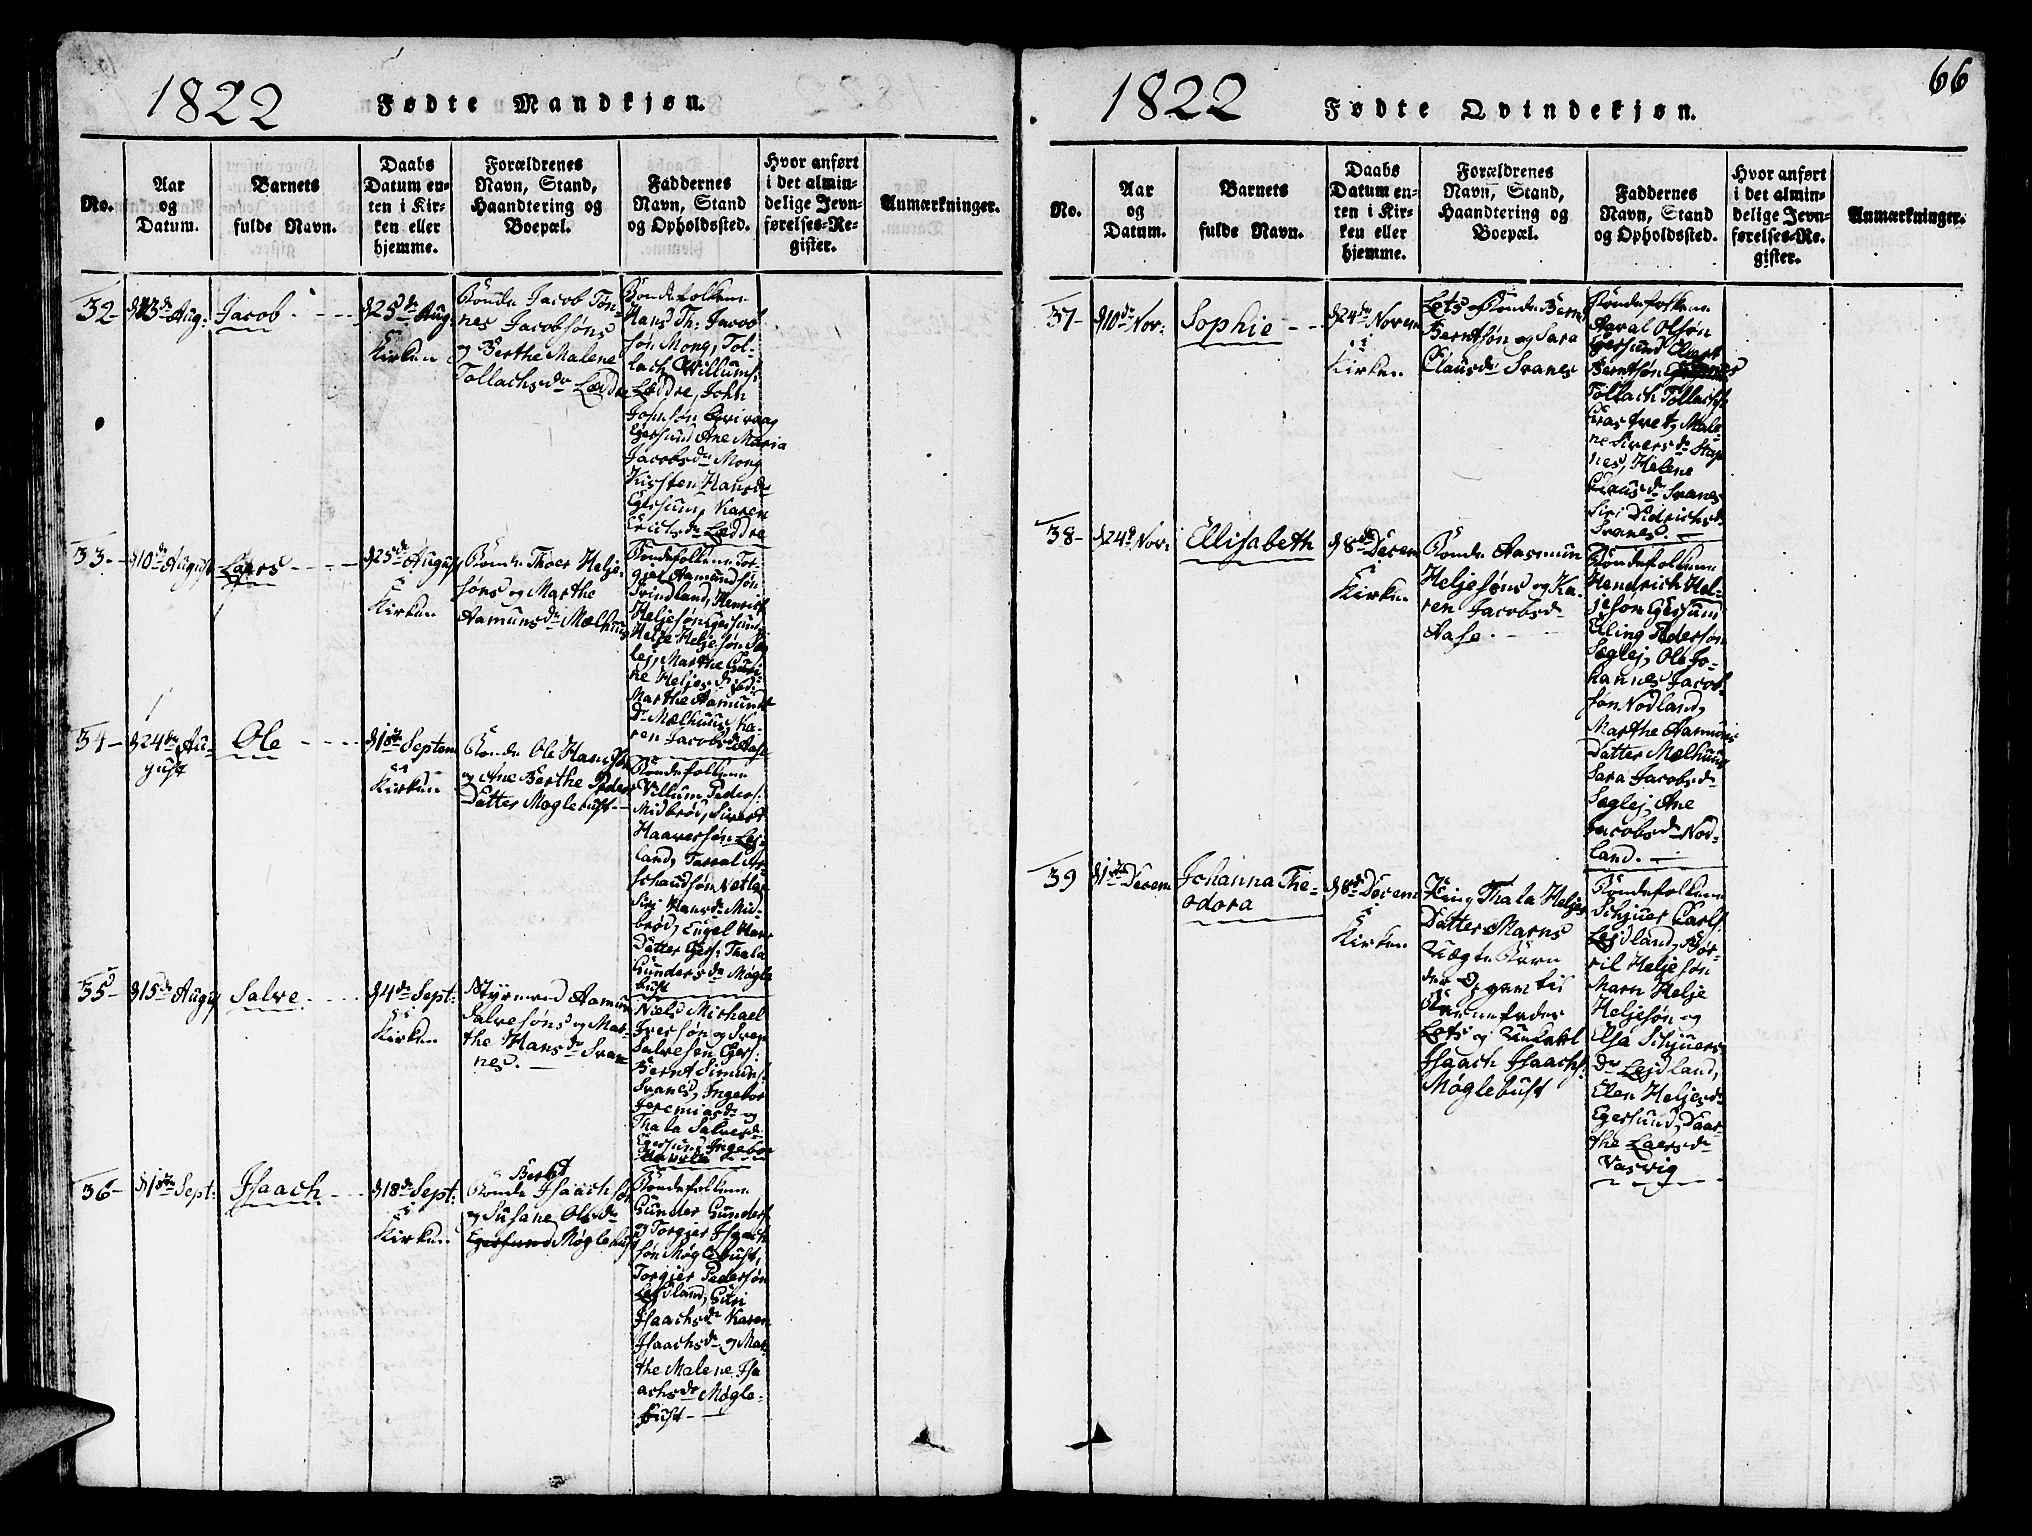 1822
Fødte Mandkjøn.
No.
Aar
og
Datum.
Barnets
fulde Navn.
Daabs
Datum en-
ten i Kir-
ken eller
hjemme.
Forældrenes
Navn, Stand,
Haandtering og
Boepæl.
Faddernes
Navn, Stand
og Opholdssted.
Hvor anført
i det almin-
delige Jevn-
førelses-Re-
gister.
Anmærkninger.
32-
Jacob.
d 25de Aug:
Kirken
Bonde Jacob Tøn-
nes Jacobsøns
og Berthe Malene
Tollachsdr Lædre
Bondefolkene
Hans Th: Jacob
søn Mong, Tol-
lach Willums:
Lædre, John
Johnsøn
Egersund Ane Maria
Jacobsdr Mong
Kirsten Hansdr
Egersun, Karen
Erichsdr Lædre
33-
d 10de August
Laers
d 25de August
Kirken
Bonde Thoer Helje-
søns og Marthe
Aamunsdr Mælhuus
Bondefolkene Tor-
gjel Aamundsøn
Trindland, Henrich
Heljesøn Egersund
Helje Heljesøn Sæg
lej, Marthe Guri-
ne Heljesdr
Marthe Aamunds
dr Mælhuus Ka-
ren Jacobsdr Aase
34-
d 24de Au-
gust
Ole
d 1ste Septem
Kirken
Bonde Ole Hansøn
og Ane Berthe Peders
Datter Møglebust-
Bondefolkene
Villum Peders:
Midbrød, Sivert
Haaversøn Lej-
land,
Siri Hansdr Mid-
brød, Engel Hans
Datter Egers: Thala
Gundersdr Møgle
bust
35-
d 15de Augu
Salve.
d 4de Sept:
Kirken
Styrmand Aamun
Salvesøns og Mar-
the Hansdr Svan
nes.
Niels Michael
Iversøn og Sven
Salvesen Egers:
Bernt Simuns:
Svanes, Ingebor
Jeremiasdr og
Thala Salvesdr
Egersund Ingebor
36-
d 1ste Sept:
Isaach
d 18de Sept:
Kirken
Bernt
Bonde Isaachsøn
og Susane Olsdr
Egersund Møglebust
Bondefolkene
Gunder Gunders
og Torgjer Isaach
søn Møglebust,
Torgjer Pedersøn
Lejdland, Guri
Isaachsdr Karen
Isaachsdr og Mar
the Malene Isa
achsdr Møgle-
bust-
1822
Fødte Qvindekjøn.
66
No.
Aar
og
Datum.
Barnets
fulde Navn.
Daabs
Datum en-
ten i Kir-
ken eller
hjemme.
Forældrenes
Navn, Stand,
Haandtering og
Boepæl.
Faddernes
Navn, Stand
og Opholdssted.
Hvor anført
i det almin-
delige Jevn-
førelses-Re-
gister.
Anmærkninger.
37-
d 10de Nov:
Sophie
d 24de Novem
Kirken
Lots Bonde Bernt
Berntsøn og Sara
Clausdr Svanes
Bondefolkene
Olsøn
Egersund
Berntsøn
Tollach Tollachs:
Male
ne Siversdr Stap
nes, Helene
Clausdr Svanes
Siri Didrichsdr
Svanes.
38-
d 24de Nov:
Ellisabeth
d 8de Decem
Kirken
Bonde Aasmun
Heljesøns og Ka-
ren Jacobsdr
Aase.
Bondefolkene
Hendrich Hel-
jesøn Egersun
Elling Pedersøn
Sæglej, Ole Jo-
hannes Jacob
søn Nodland,
Marthe Aamuns
Datter Mælhuus
Sara Jacobsdr
Sæglej, Ane
Jacobsdr Nod-
land.
39
d 1ste Decem
Johanna The-
odora
d 8de Decem
Kirken
Pige Thala Heljes
Datter Marns
Uægte Barn
Lots og Ungkarl
Isaach Isaachs:
Møglebust
Bondefolkene
Schjuer Carls:
Lejdland, Bør-
ril Heljesøn
Marn Helje
Heljesøn og
Elsa Schjuers
dr Lejdland,
Elen Heljesdr
Egersund, Daar-
the Laersdr
Vasvig